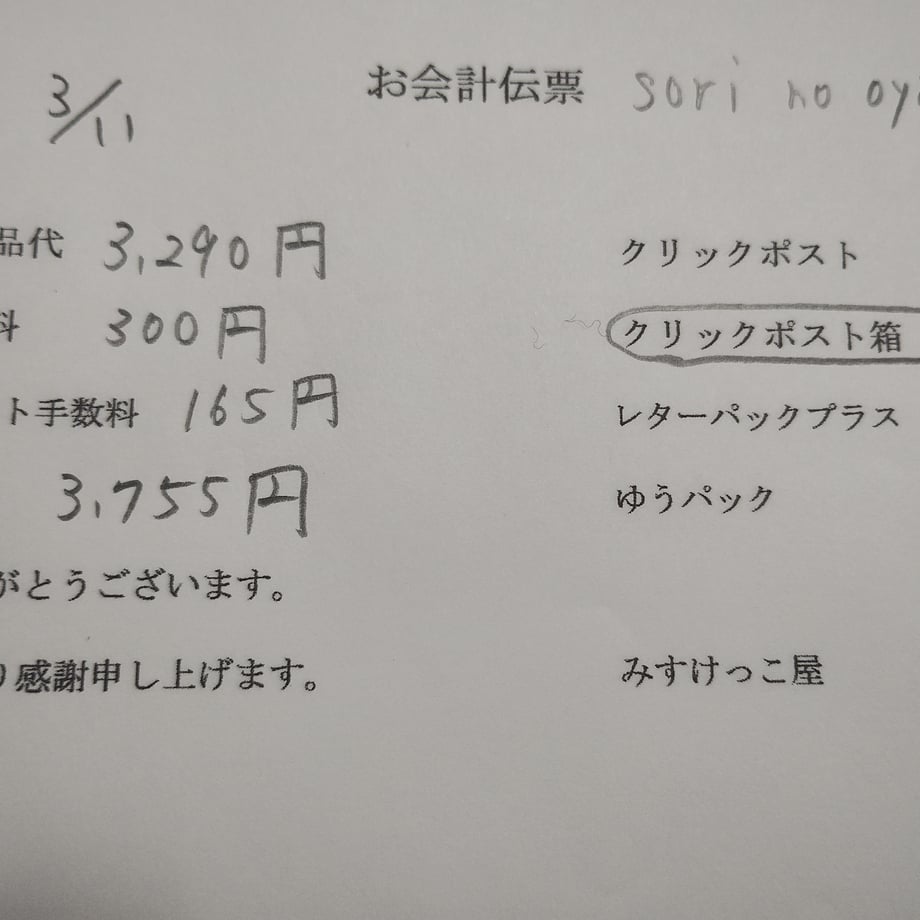 3/11
お会計伝票 sori no oy
品代 3,290円 クリックポスト
料 300円 クリックポスト箱
ト手数料 165円 レターパックプラス
3,755円 ゆうパック
がとうございます。
り感謝申し上げます。 みすけっこ屋